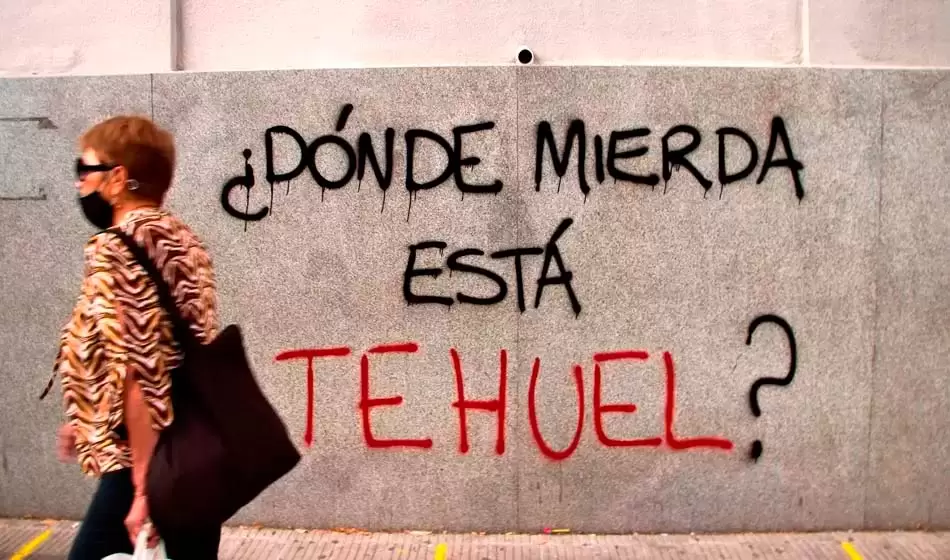 ¿DÓNDE MIERDA
ESTÁ
TEHUEL?